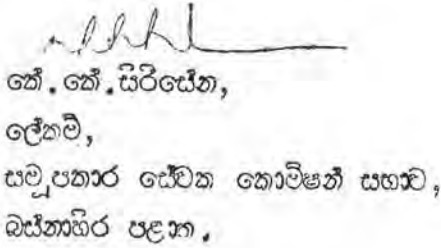 කේ.කේ.සිරිසේන,
ලේකම්,
සමූපකාර සේවක කොමිෂන් සභාව,
බස්නාහිර පළාත.